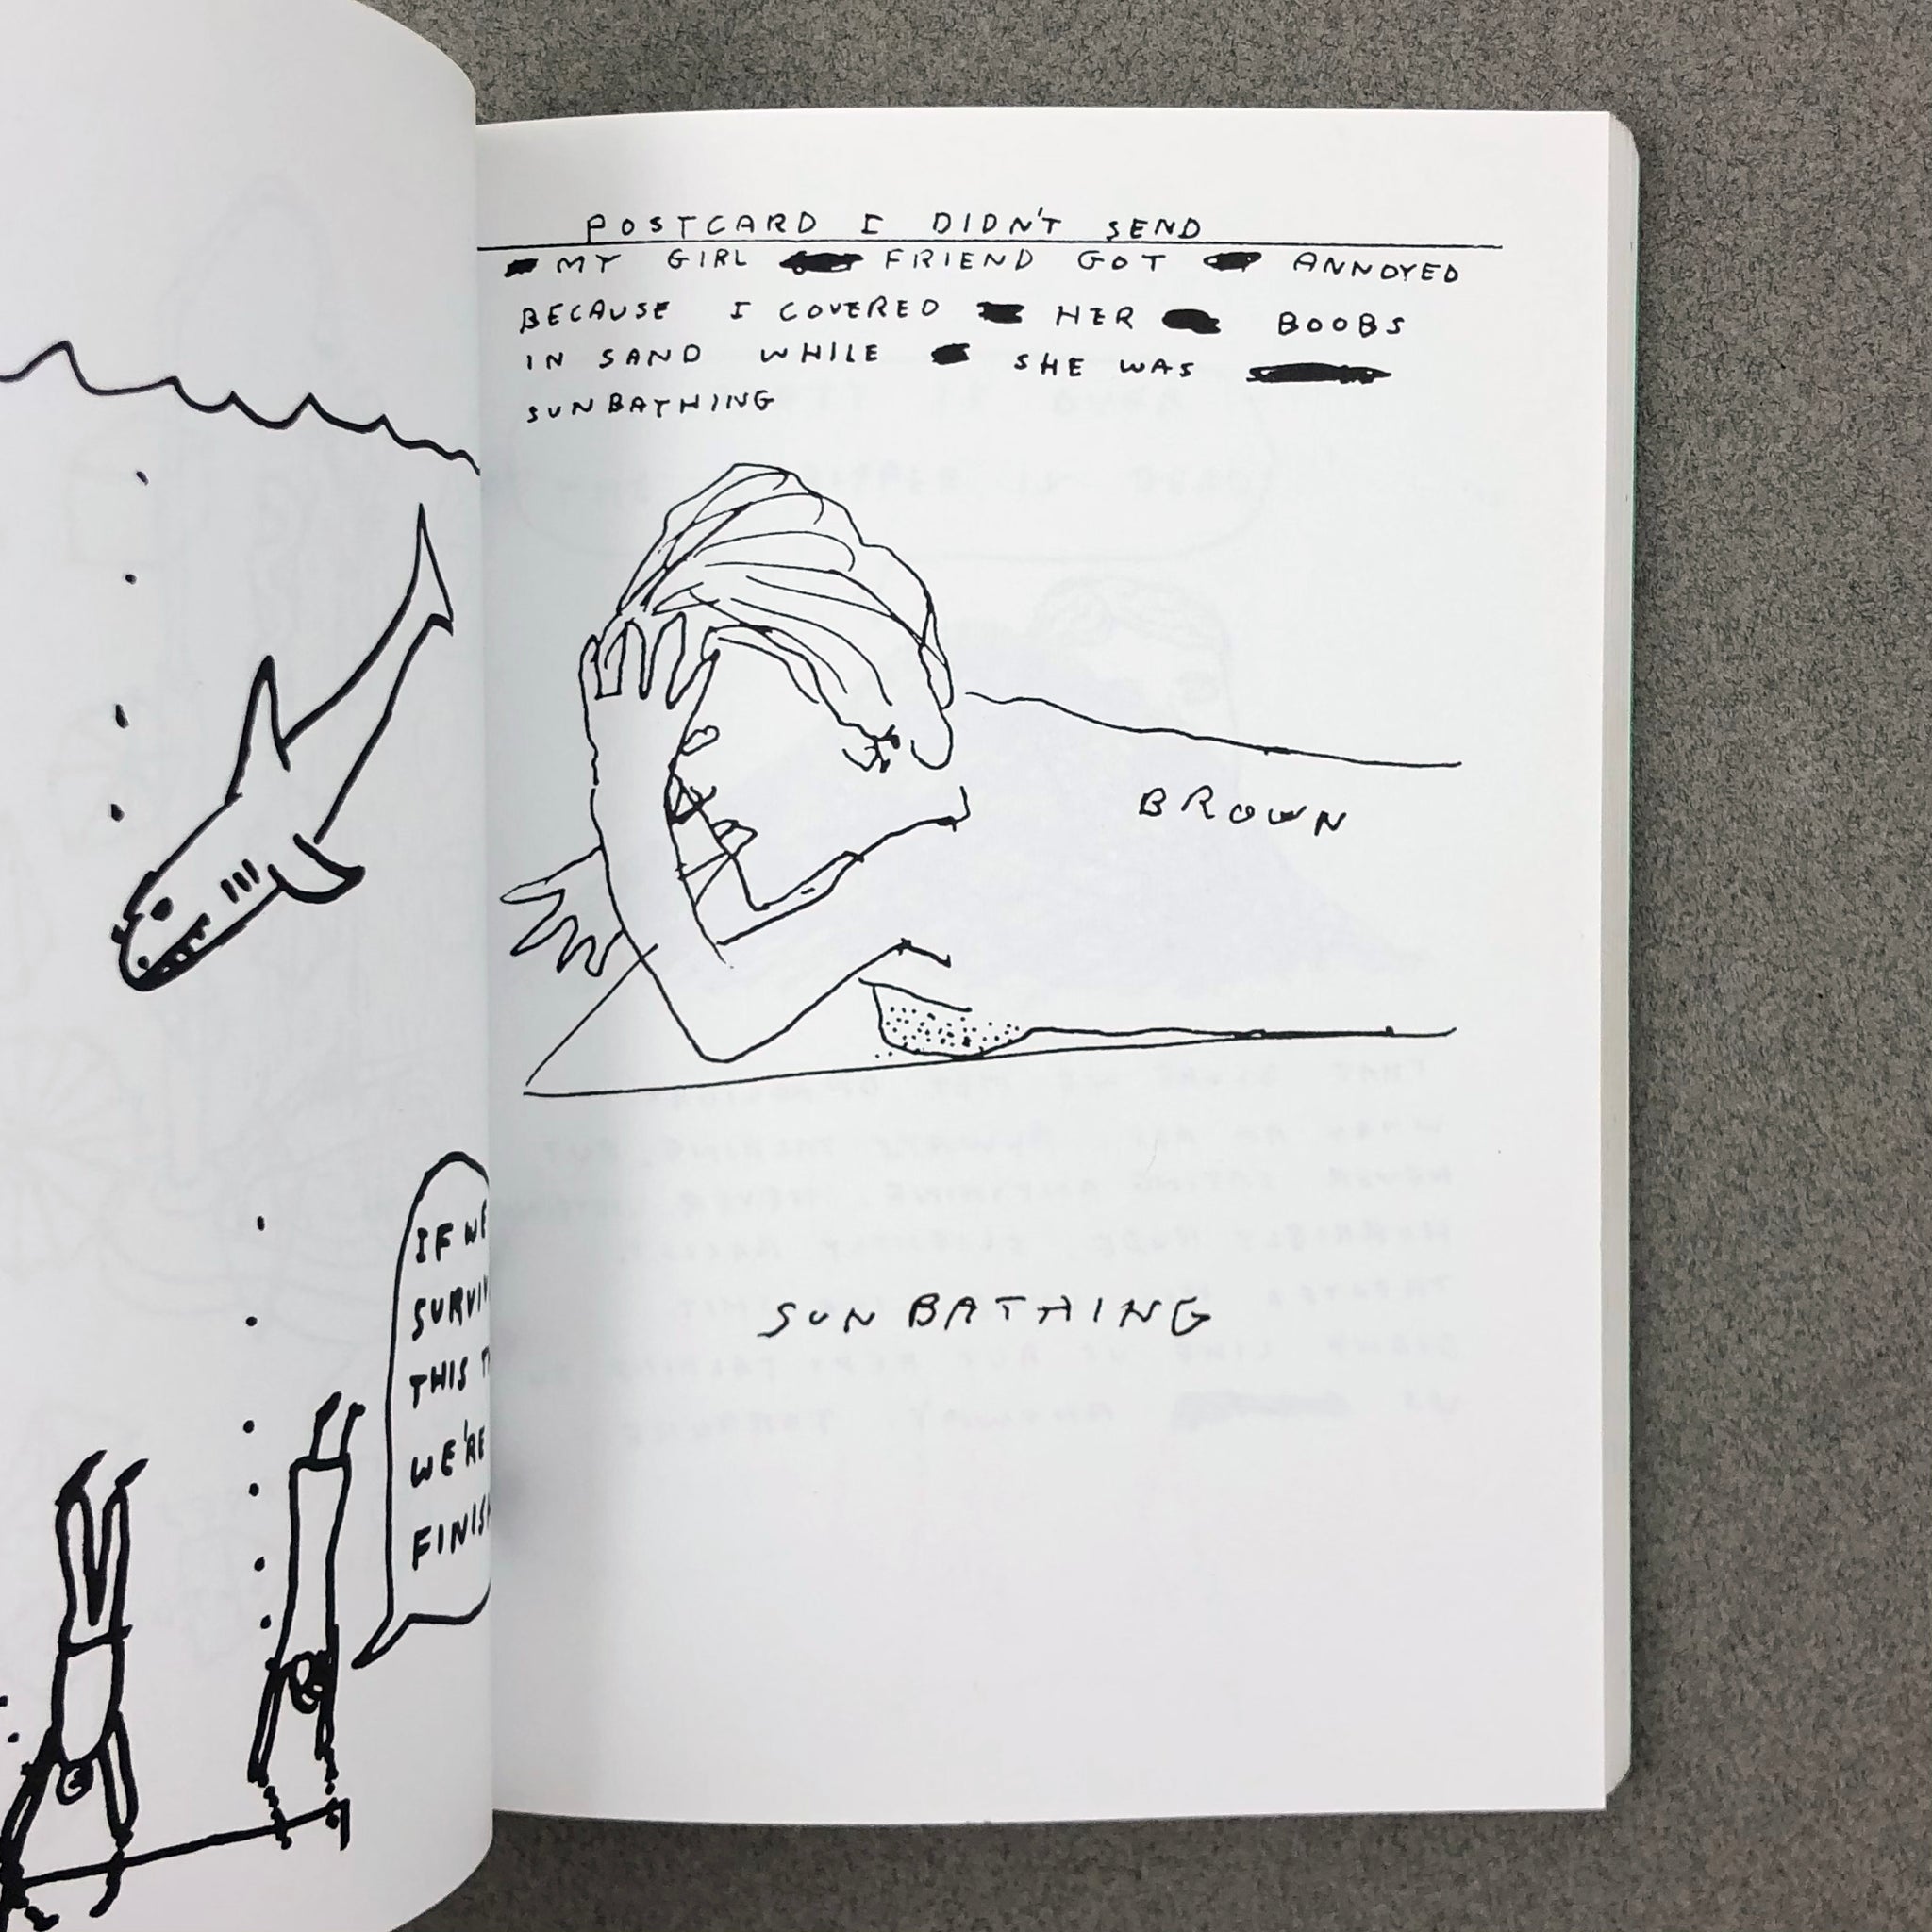 IF WE
THIS
WE'RE
POSTCARD I DIDN'T SEND
MY GIRL FRIEND GOT ANNOYED
BECAUSE I COVERED HER BOOBS
IN SAND WHILE SHE WAS
SUNBATHING
BROWN
SUNBATHING